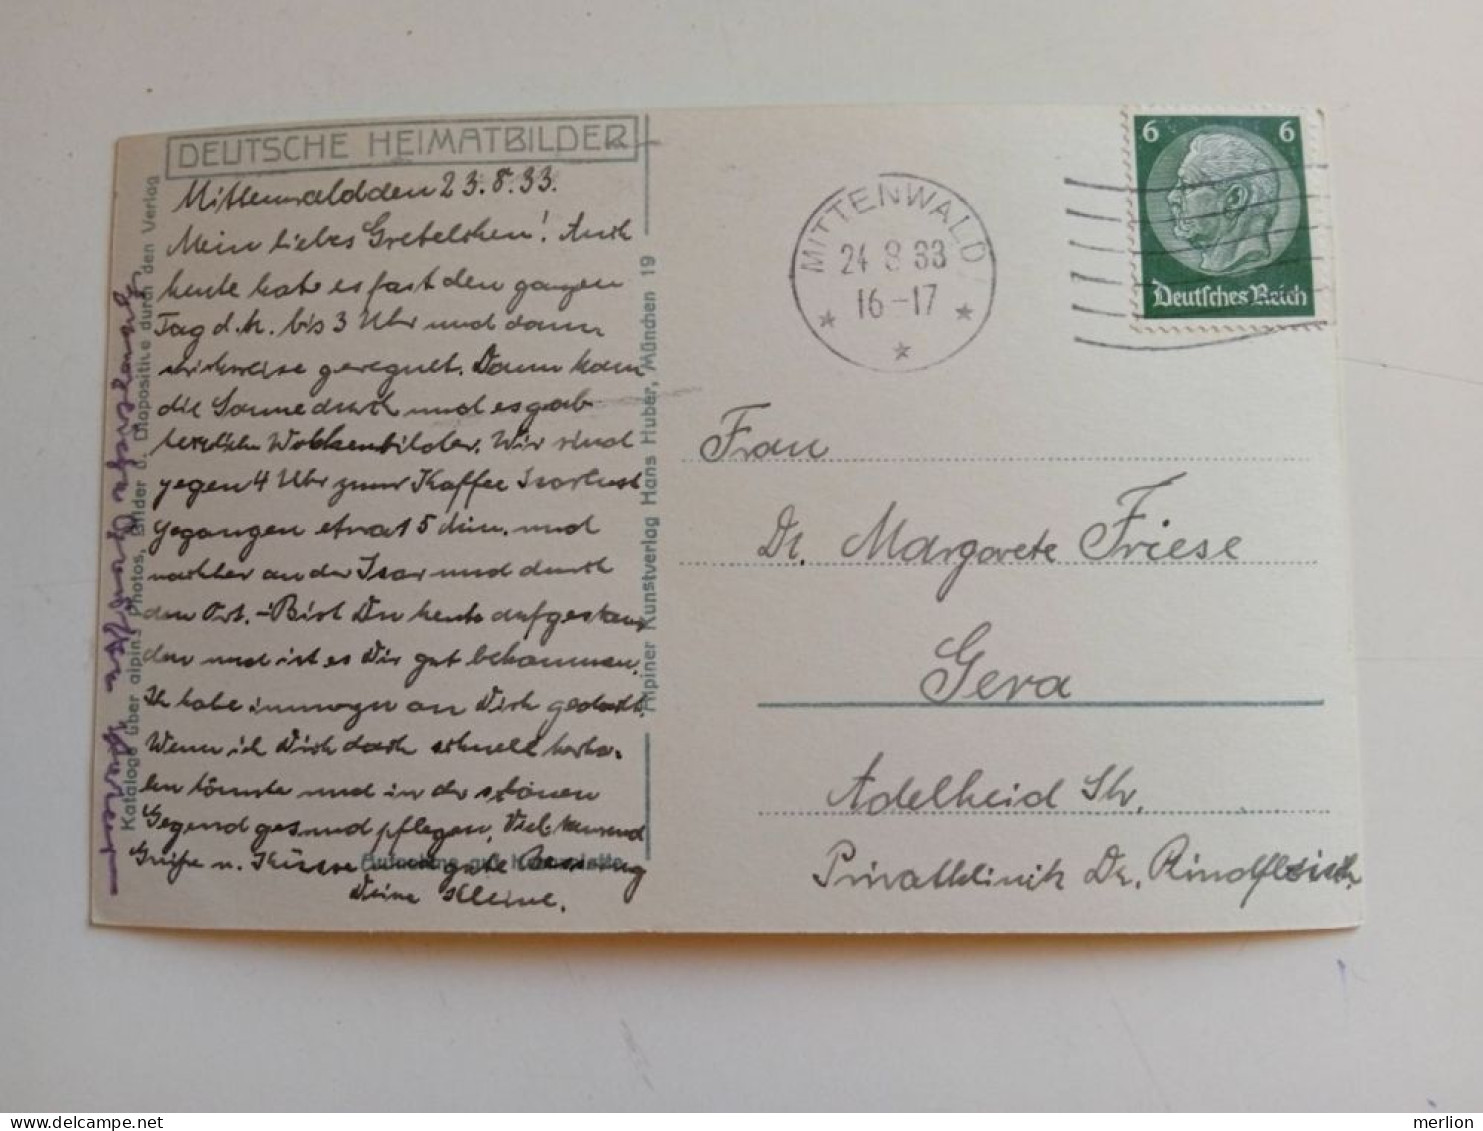 DEUTSCHE HEIMATBILDER
Mittenwald den 23.8.33.
Mein liebes Gretelchen! Auch
heute hat es fast den ganzen
Tag d.h. bis 3 Uhr und dann
geregnet. Dann kam
die Sonne durch und es gab
herrliche Wolkenbilder. Wir sind
gegen 4 Uhr zum Kaffee Isarlust
gegangen etwa 15 Min. und
nachher an der Isar und durch
den Ort. - Bist Du heute aufgestan
den und ist es Dir gut bekommen.
Ich habe an Dich gedacht.
Wenn ich Dich doch schnell herho-
len könnte und in der schönen
Gegend gesund pflegen. Viel tausend
Grüße u. Küsse gute Besserung
Deine Kleine.
Kataloge über alpine Photos, Bilder u. Diapositive durch den Verlag
Alpiner Kunstverlag Hans Huber, München 19
MITTENWALD
24 8 33
16-17
6 6
Deutsches Reich
Frau
Dr. Margarete Friese
Gera
Adelheid Str.
Privatklinik Dr.
merlion